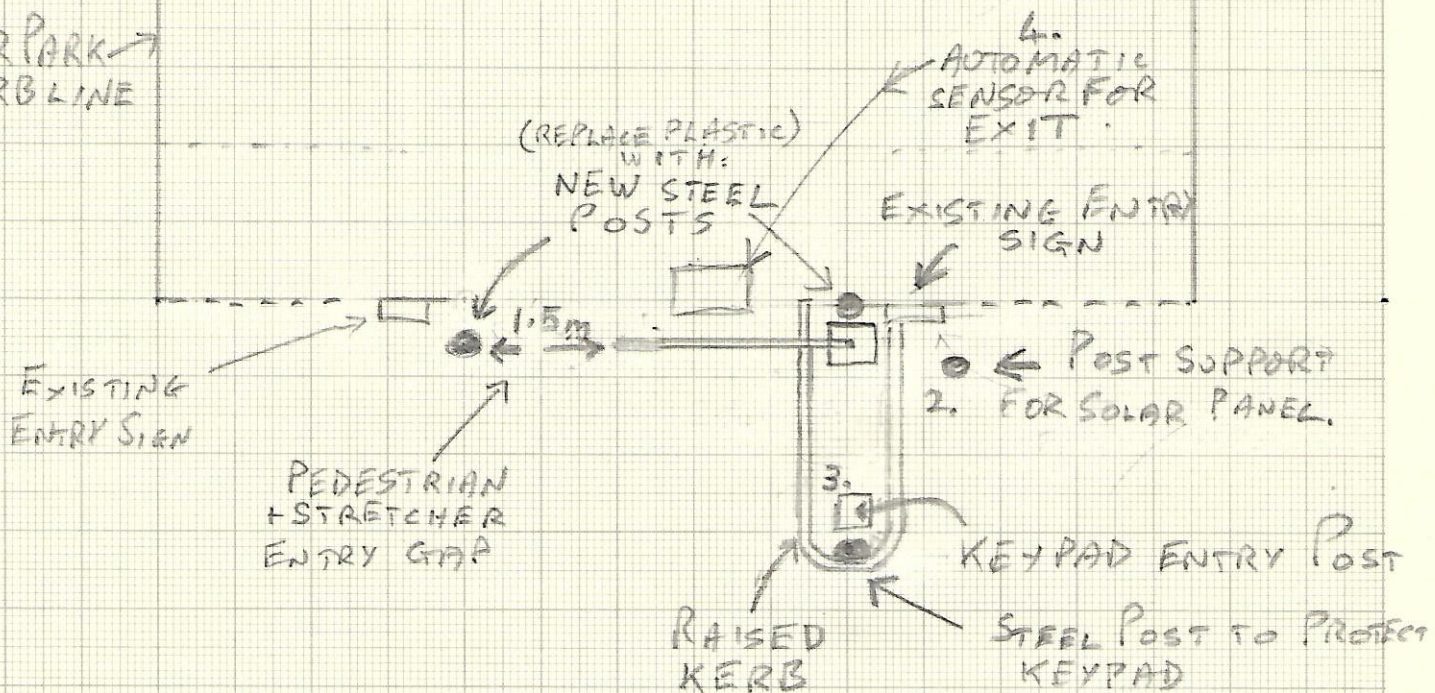 R PARK
RB LINE
4.
AUTOMATIC
SENSOR FOR
EXIT.
(REPLACE PLASTIC)
WITH:
NEW STEEL
POSTS
EXISTING ENTRY
SIGN
1.5m
EXISTING
ENTRY SIGN
POST SUPPORT
2. FOR SOLAR PANEL.
PEDESTRIAN
+ STRETCHER
ENTRY GAP
3.
KEYPAD ENTRY POST
RAISED
KERB
STEEL POST TO PROTECT
KEYPAD